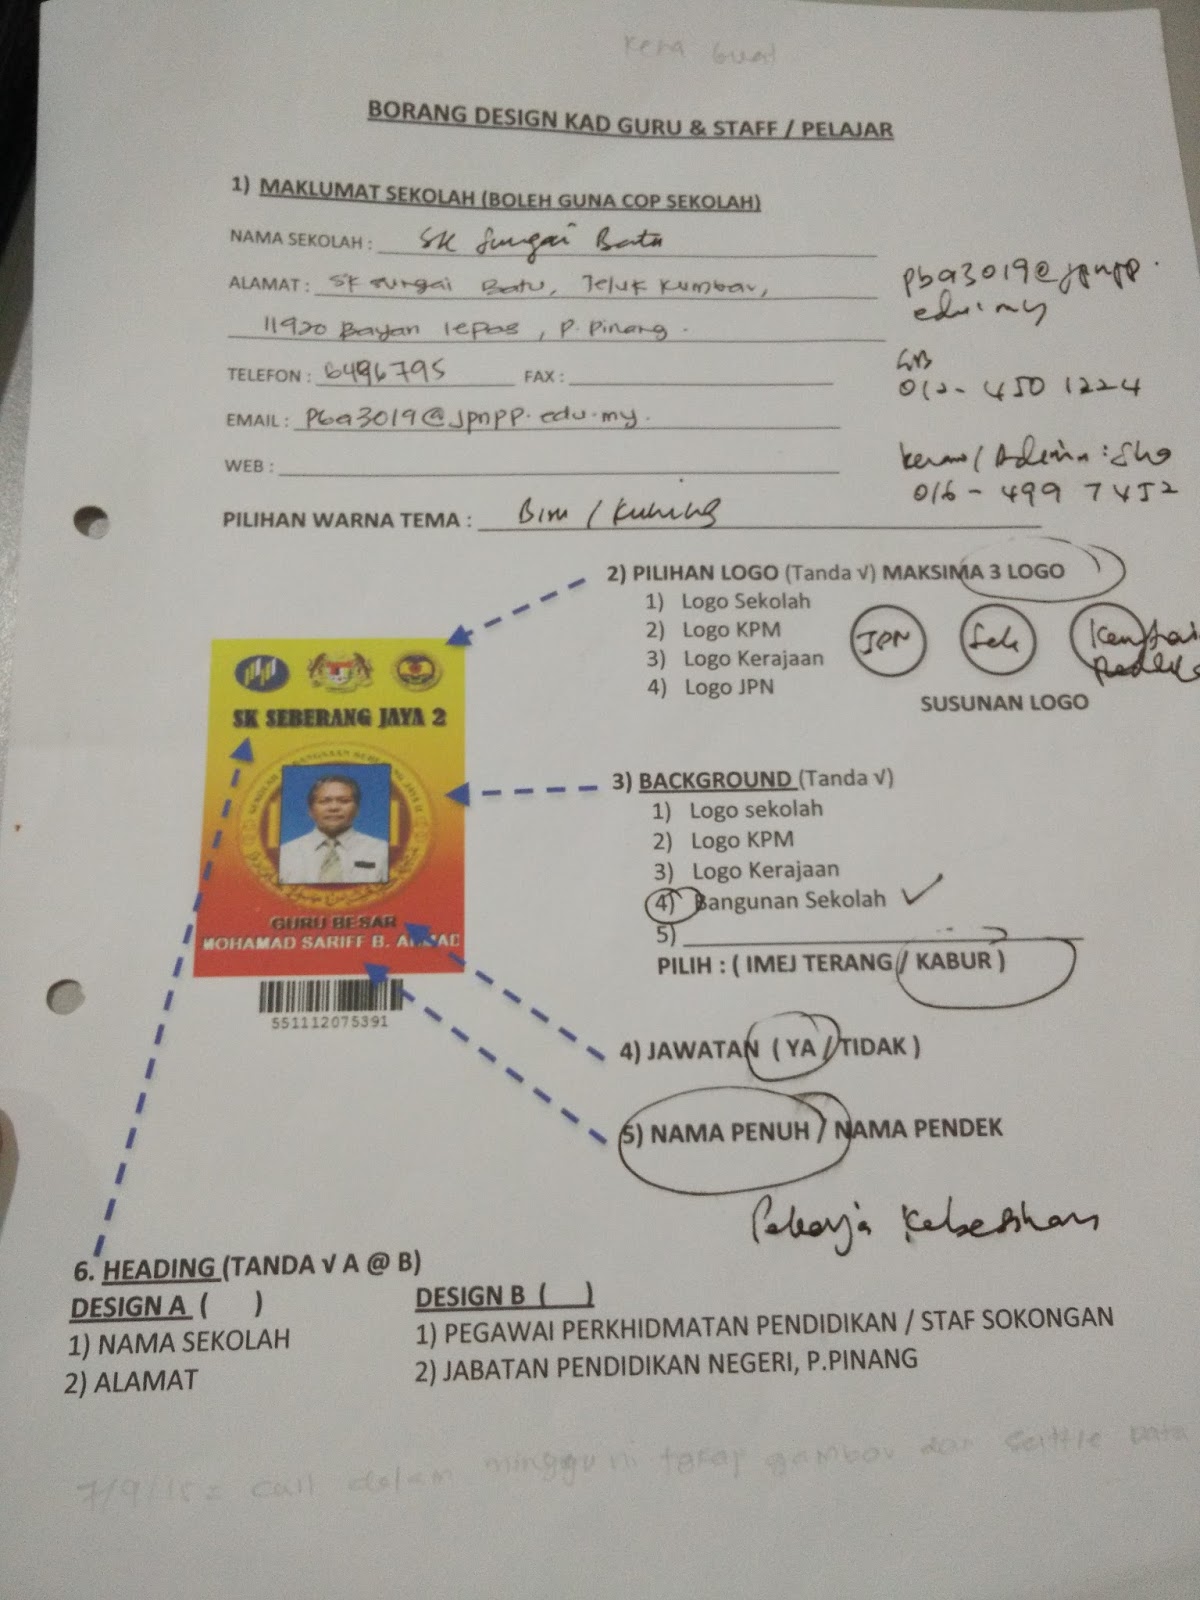 kena buat
BORANG DESIGN KAD GURU & STAFF / PELAJAR
1) MAKLUMAT SEKOLAH (BOLEH GUNA COP SEKOLAH)
NAMA SEKOLAH : SK Sungai Batu
ALAMAT : SK Sungai Batu, Teluk Kumbar,
11920 Bayan Lepas, P. Pinang.
TELEFON : 6496795 FAX :
EMAIL : Pba3019@jpnpp.edu.my.
WEB :
PILIHAN WARNA TEMA : Biru / Kuning
pba3019@jpnpp.
edu.my
GB
012- 450 1224
Admin :
016 - 499 7452
2) PILIHAN LOGO (Tanda √) MAKSIMA 3 LOGO
1) Logo Sekolah
2) Logo KPM
3) Logo Kerajaan
4) Logo JPN
JPN
Sek
SUSUNAN LOGO
SK SEBERANG JAYA 2
GURU BESAR
MOHAMAD SARIFF B.
551112075391
3) BACKGROUND (Tanda √)
1) Logo sekolah
2) Logo KPM
3) Logo Kerajaan
4) Bangunan Sekolah ✓
5)
PILIH : ( IMEJ TERANG / KABUR )
4) JAWATAN ( YA / TIDAK )
5) NAMA PENUH / NAMA PENDEK
Pekerja Kebersihan
6. HEADING (TANDA √ A @ B)
DESIGN A ( )
1) NAMA SEKOLAH
2) ALAMAT
DESIGN B ( )
1) PEGAWAI PERKHIDMATAN PENDIDIKAN / STAF SOKONGAN
2) JABATAN PENDIDIKAN NEGERI, P.PINANG
7/9/15 = call dalam minggu ni gambar dan settle data